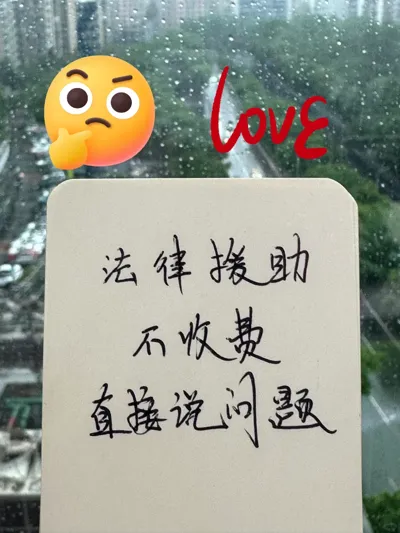 love
法律援助
不收费
直接说问题